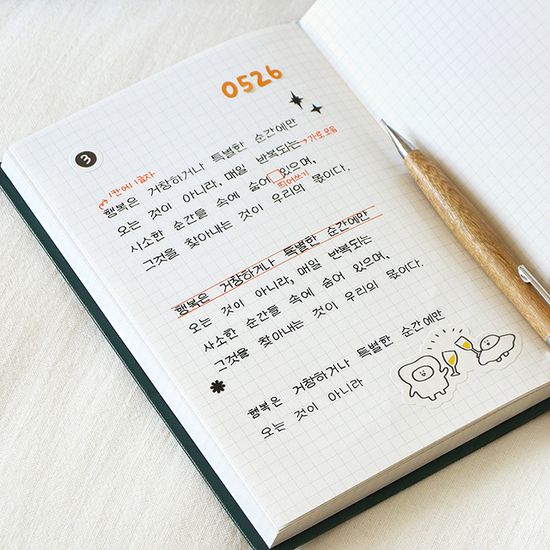 0526
3
1칸에 1글자
행복은 거창하거나 특별한 순간에만
오는 것이 아니라, 매일 반복되는 → 가로모음
사소한 순간들 속에 숨어 있으며,
띄어쓰기
그것을 찾아내는 것이 우리의 몫이다.
행복은 거창하거나 특별한 순간에만
오는 것이 아니라, 매일 반복되는
사소한 순간들 속에 숨어 있으며,
그것을 찾아내는 것이 우리의 몫이다.
행복은 거창하거나 특별한 순간에만
오는 것이 아니라